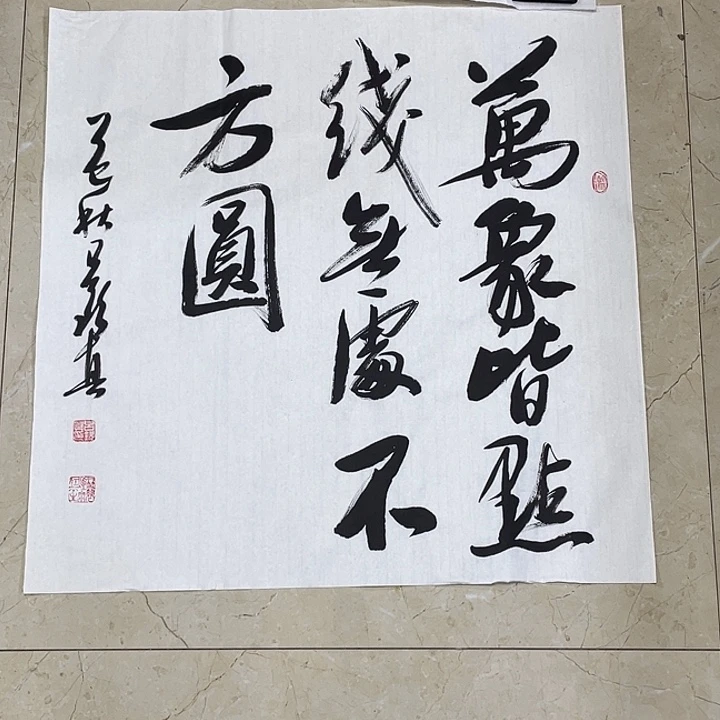 萬象皆點
线無處不
方圓
秋
真